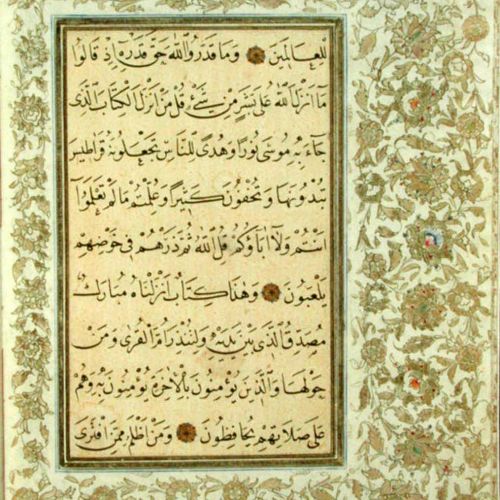 للعالمين وما قدروا الله حق قدره إذ قالوا
ما انزل الله على بشر من شئ قل من انزل الكتاب الذى
جاء به موسى نورا وهدى للناس تجعلونه قراطيس
تبدونها وتخفون كثيرا وعلمتم ما لم تعلموا
انتم ولا آباؤكم قل الله ثم ذرهم فى خوضهم
يلعبون وهذا كتاب انزلناه مبارك
مصدق الذى بين يديه ولتنذر ام القرى ومن
حولها والذين يؤمنون بالآخرة يؤمنون به وهم
على صلاتهم يحافظون ومن اظلم ممن افترى